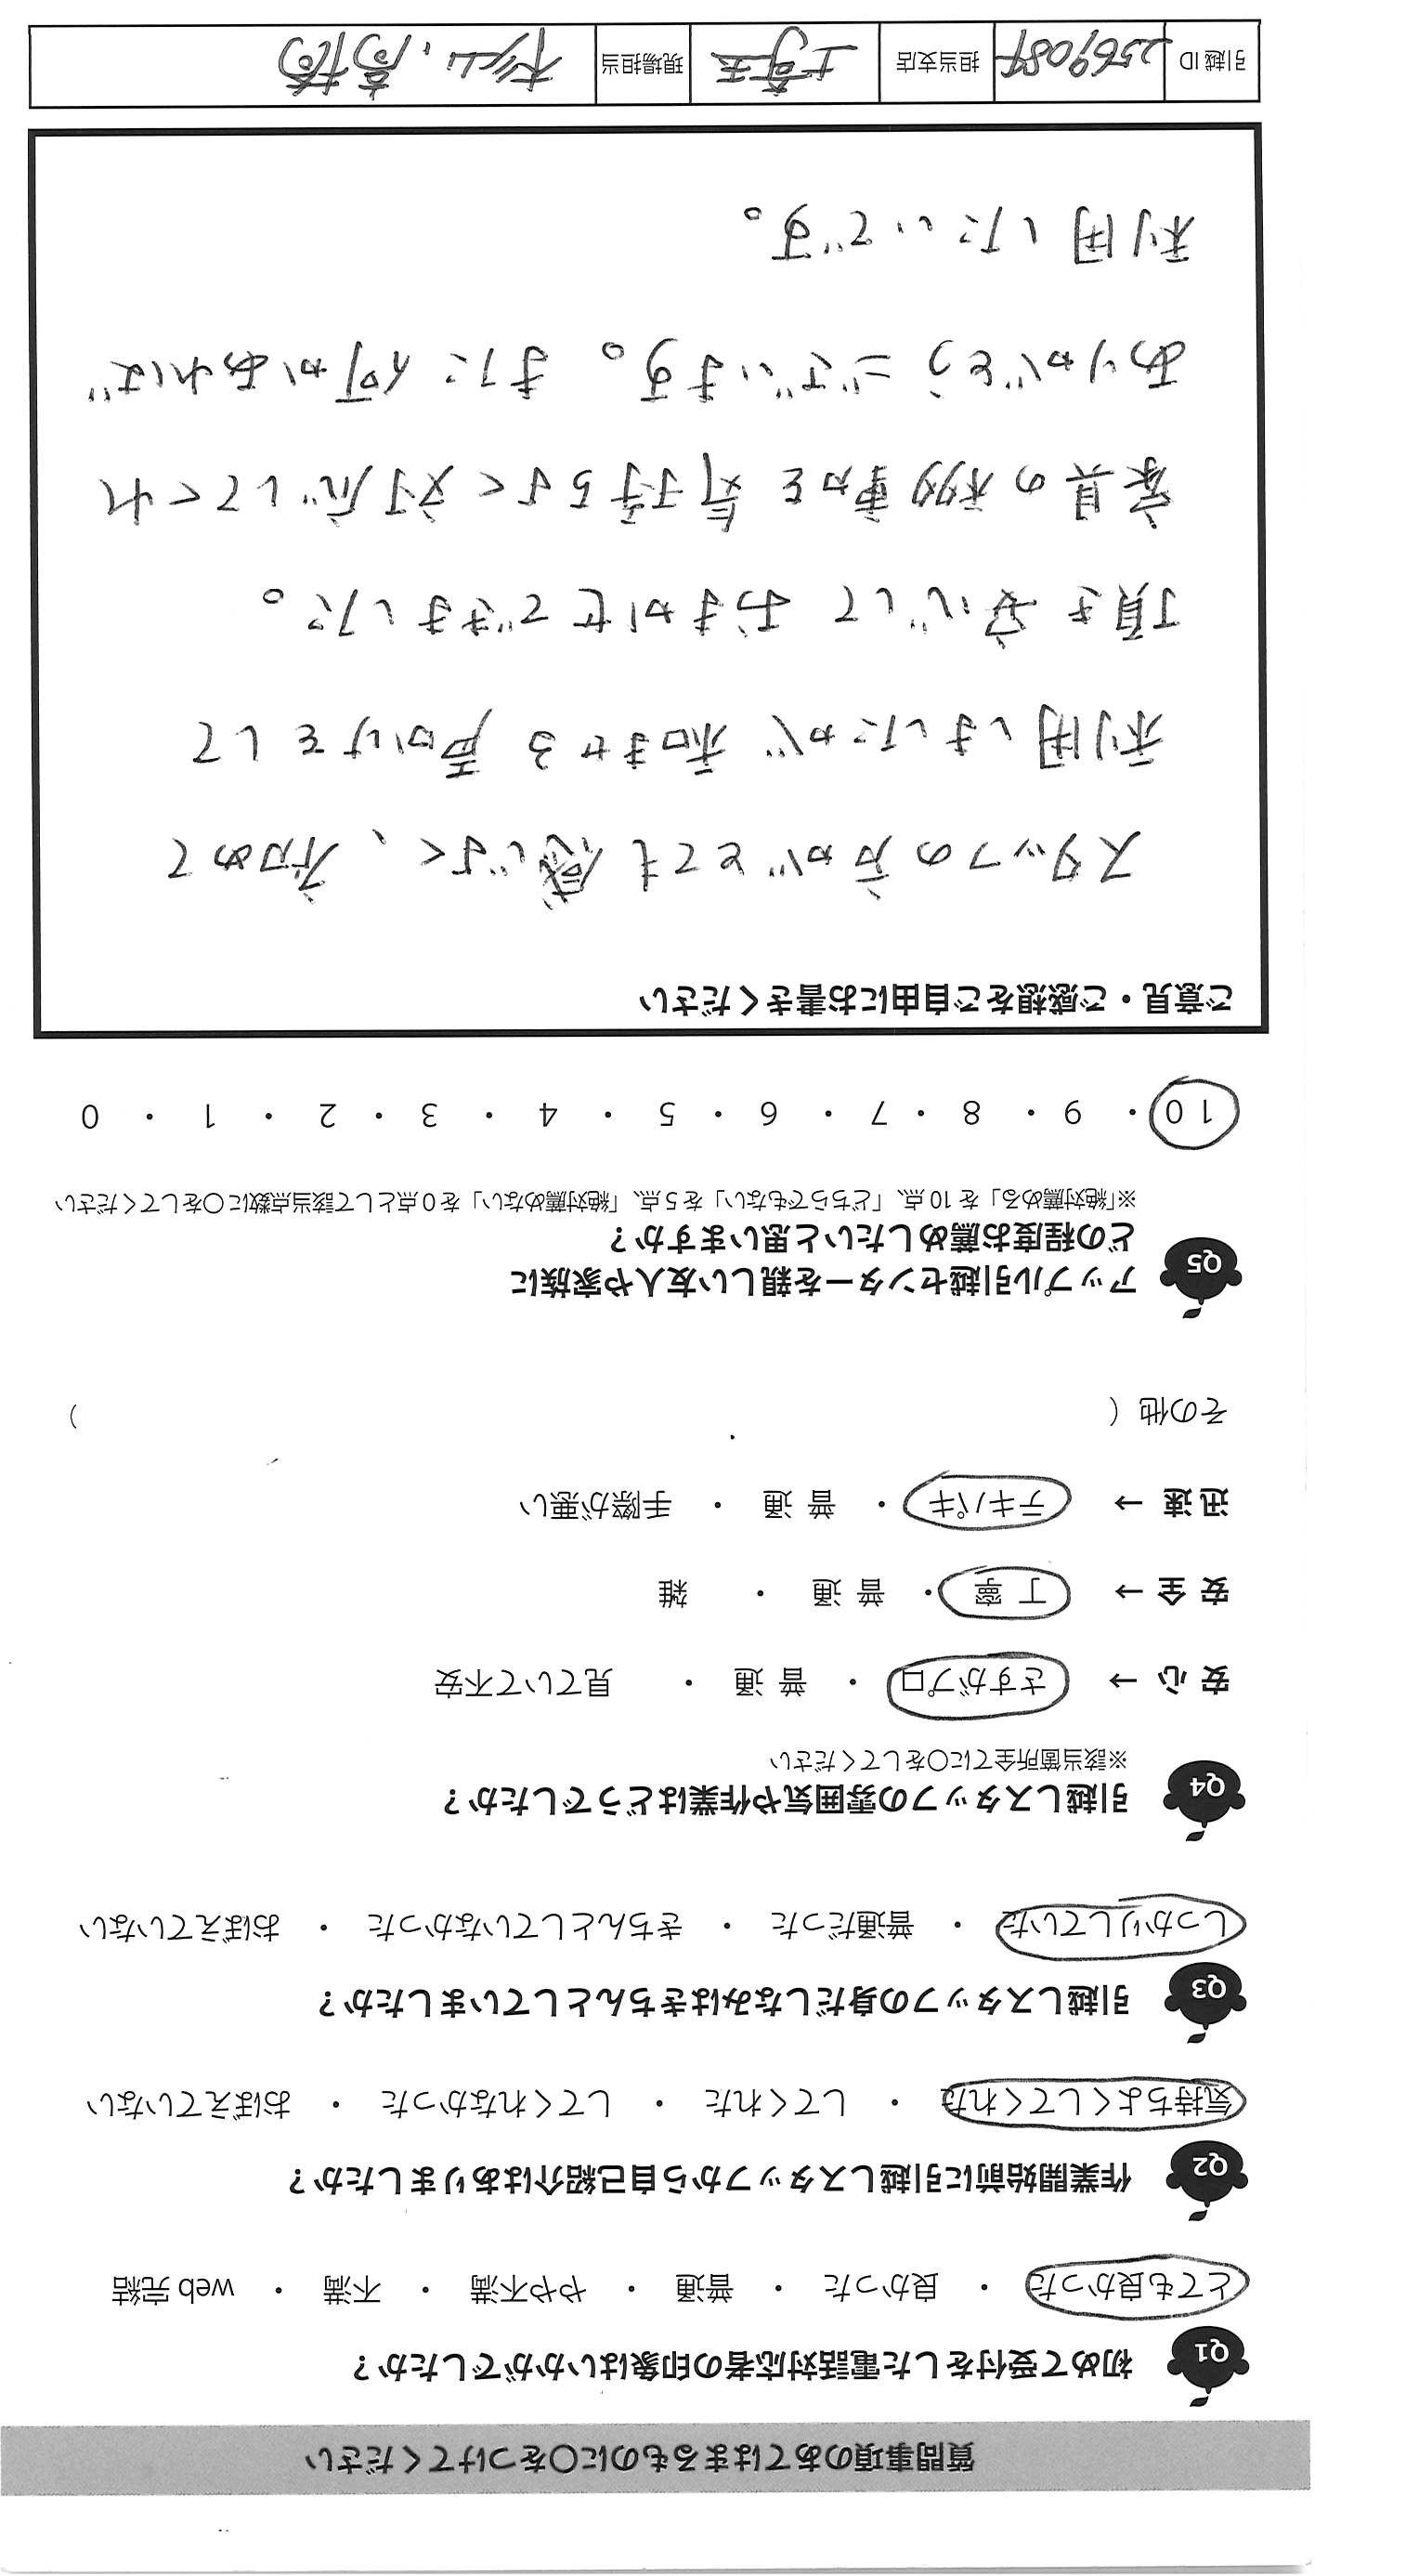 質問事項のあてはまるものに〇をつけてください
Q1 初めて受付をした電話対応者の印象はいかがでしたか？
とても良かった ・ 良かった ・ 普通 ・ やや不満 ・ 不満 ・ web 完結
Q2 作業開始前に引越しスタッフから自己紹介はありましたか？
気持ちよくしてくれた ・ してくれた ・ してくれなかった ・ おぼえていない
Q3 引越しスタッフの身だしなみはきちんとしていましたか？
しっかりしていた ・ 普通だった ・ きちんとしていなかった ・ おぼえていない
Q4 引越しスタッフの雰囲気や作業はどうでしたか？
※該当箇所全てに〇をしてください
安 心 → さすがプロ ・ 普 通 ・ 見ていて不安
安 全 → 丁 寧 ・ 普 通 ・ 雑
迅 速 → テキパキ ・ 普 通 ・ 手際が悪い
その他（ ）
Q5 アップル引越センターを親しい友人や家族に
どの程度お薦めしたいと思いますか？
※「絶対薦める」を 10 点、「どちらでもない」を 5 点、「絶対薦めない」を 0 点として該当点数に〇をしてください
10 ・ 9 ・ 8 ・ 7 ・ 6 ・ 5 ・ 4 ・ 3 ・ 2 ・ 1 ・ 0
ご意見・ご感想をご自由にお書きください
スタッフの方がとても感じよく、初めて
利用しましたが 和ませる 声かけをして
頂き 安心して おまかせできました。
家具の移動を 気持ちよく対応してくれ
ありがとうございます。 また 何かあれば
利用したいです。
引越 ID 2569084 担当支店 埼玉 現場担当 杉山、高橋